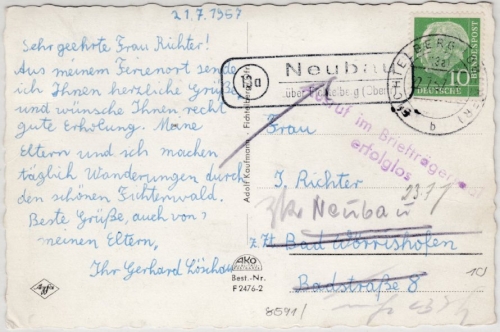 21.7.1957
Sehr geehrte Frau Richter!
Aus meinem Ferienort sende
ich Ihnen herzliche Grüße
und wünsche Ihnen recht
gute Erholung. Meine
Eltern und ich machen
täglich Wanderungen durch
den schönen Fichtenwald.
Beste Grüße, auch von
meinen Eltern,
Ihr Gerhard Löschau
Adolf Kaufmann
AKO
Best.-Nr.
F 2476-2
Agfa
13a
Neubau
über Fichtelberg (Oberfr)
10
DEUTSCHE BUNDESPOST
FICHTELBERG
b
Ausruf im Briefträgersaal
erfolglos
Frau
J. Richter
2371
Neubau
z. Zt. Bad Wörrishofen
Badstraße 8
8591/